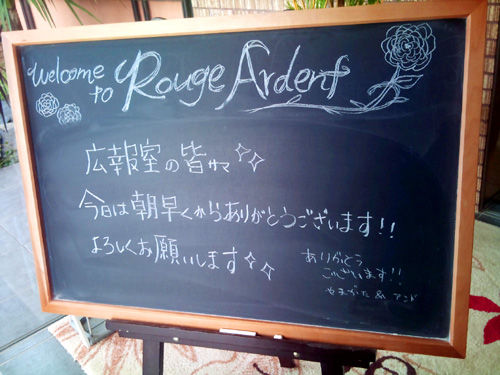 Welcome to Rouge Ardent
広報室の皆サマ
今日は朝早くからありがとうございます!!
よろしくお願いします
ありがとう
ございます!!
やまがた & アンド